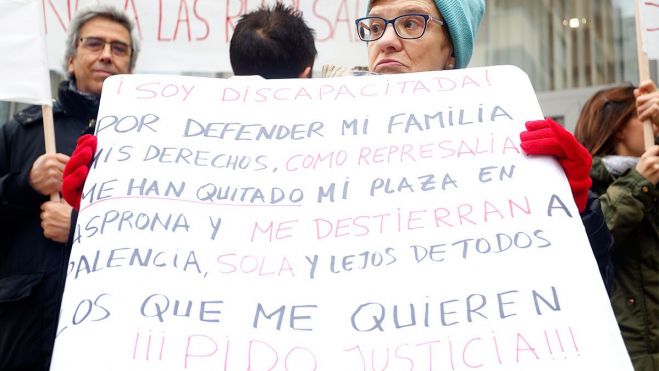 A LAS REPRESAL
¡SOY DISCAPACITADA!
POR DEFENDER MI FAMILIA
MIS DERECHOS, COMO REPRESALIA
ME HAN QUITADO MI PLAZA EN
ASPRONA Y ME DESTIERRAN A
PALENCIA, SOLA Y LEJOS DE TODOS
LOS QUE ME QUIEREN
¡¡¡PIDO JUSTICIA!!!